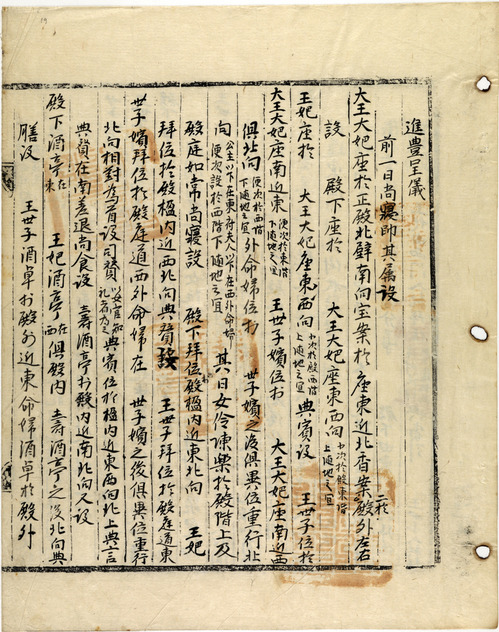 進豊呈儀
前一日尚寢帥其屬設
大王大妃座於正殿北壁南向宝案於座東近北香案二於殿外左右
設 殿下座於 大王大妃座東西向小次於殿東階上隨地之宜
王妃座於 大王大妃座東西向小次於殿西階上隨地之宜 典賓設 王世子位於
大王大妃座南近東便次於東階下隨地之宜 王世子嬪位於 大王大妃座南近西
俱北向便次於西階下隨地之宜外命婦位於 世子嬪之後俱異位重行北
向公主以下在東府夫人以下在西外命婦便次設於西階下隨地之宜 其日女伶陳樂於殿階上及
殿庭如常尚寢設 殿下拜位於殿楹內近東北向 王妃
拜位於殿楹內近西北向典賛設 王世子拜位於殿庭道東
世子嬪拜位於殿庭道西外命婦在 世子嬪之後俱異位重行
北向相對為首設司賛以女官知礼者為之典賓位於楹內近東西向北上典言
典賛在南差退尚食設 壽酒亭於殿內近南北向又設
殿下酒亭在東 王妃酒亭在西俱殿內 壽酒亭之後北向典
膳設 王世子酒卓於殿外近東命婦酒卓於殿外